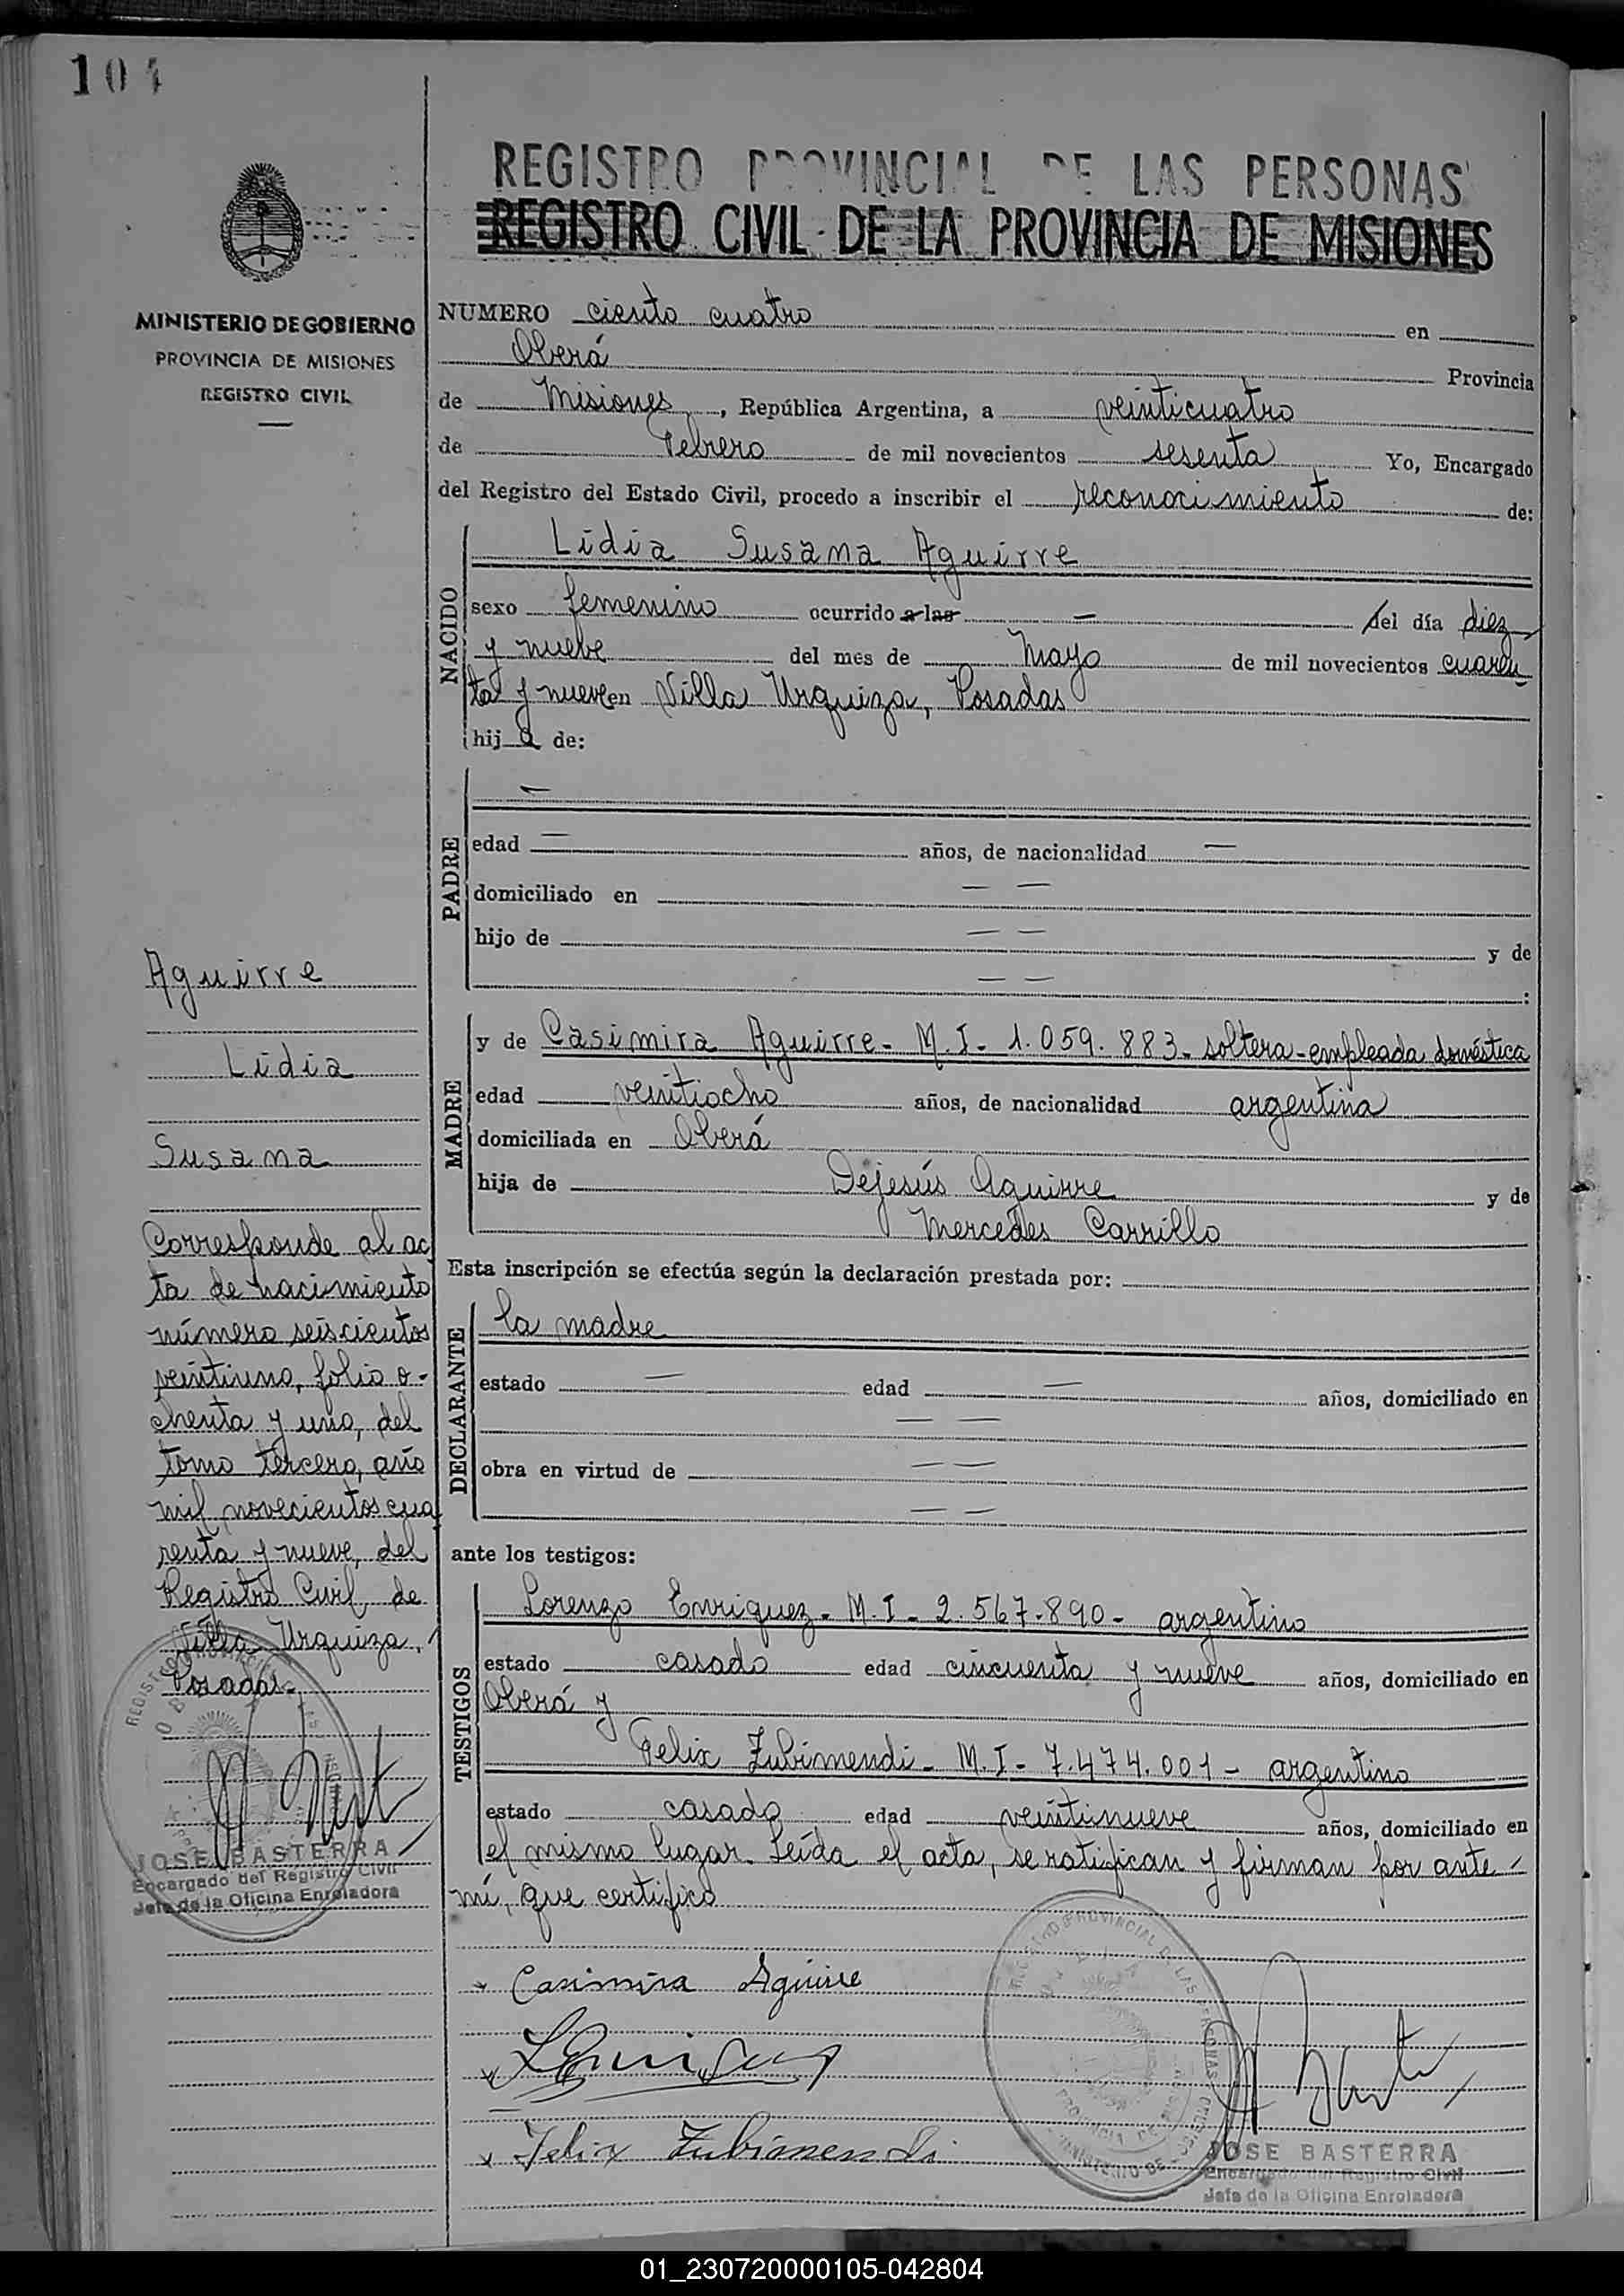 104
REGISTRO PROVINCIAL DE LAS PERSONAS
REGISTRO CIVIL DE LA PROVINCIA DE MISIONES
MINISTERIO DE GOBIERNO
PROVINCIA DE MISIONES
REGISTRO CIVIL
NUMERO ciento cuatro en
Oberá Provincia
de Misiones, República Argentina, a veinticuatro
de Febrero de mil novecientos sesenta Yo, Encargado
del Registro del Estado Civil, procedo a inscribir el reconocimiento de:
NACIDO
Lidia Susana Aguirre
sexo femenino ocurrido a las — del día diez
y nueve del mes de Mayo de mil novecientos cuaren
ta y nueve en Villa Urquiza, Posadas
hija de:
PADRE
—
edad — años, de nacionalidad —
domiciliado en — —
hijo de — — y de
— — :
MADRE
y de Casimira Aguirre - M.I - 1.059.883 - soltera - empleada doméstica
edad veintiocho años, de nacionalidad argentina
domiciliada en Oberá
hija de Dejesús Aguirre y de
Mercedes Carrillo
Esta inscripción se efectúa según la declaración prestada por:
DECLARANTE
la madre
estado — edad — años, domiciliado en
— —
obra en virtud de — —
— —
ante los testigos:
TESTIGOS
Lorenzo Enriquez - M.I - 2.567.890 - argentino
estado casado edad cincuenta y nueve años, domiciliado en
Oberá y
Felix Zubimendi - M.I - 7.474.001 - argentino
estado casado edad veintinueve años, domiciliado en
el mismo lugar. Leída el acta, se ratifican y firman por ante
mí, que certifico
Casimira Aguirre
LEnriquez
Felix Zubimendi
JOSE BASTERRA
Encargado del Registro Civil
Jefe de la Oficina Enroladora
Aguirre
Lidia
Susana
Corresponde al ac
ta de nacimiento
número seiscientos
veintiuno, folio o-
chenta y uno, del
tomo tercero, año
mil novecientos cua
renta y nueve, del
Registro Civil de
Villa Urquiza,
Posadas.
JOSE BASTERRA
Encargado del Registro Civil
Jefe de la Oficina Enroladora
01_230720000105-042804